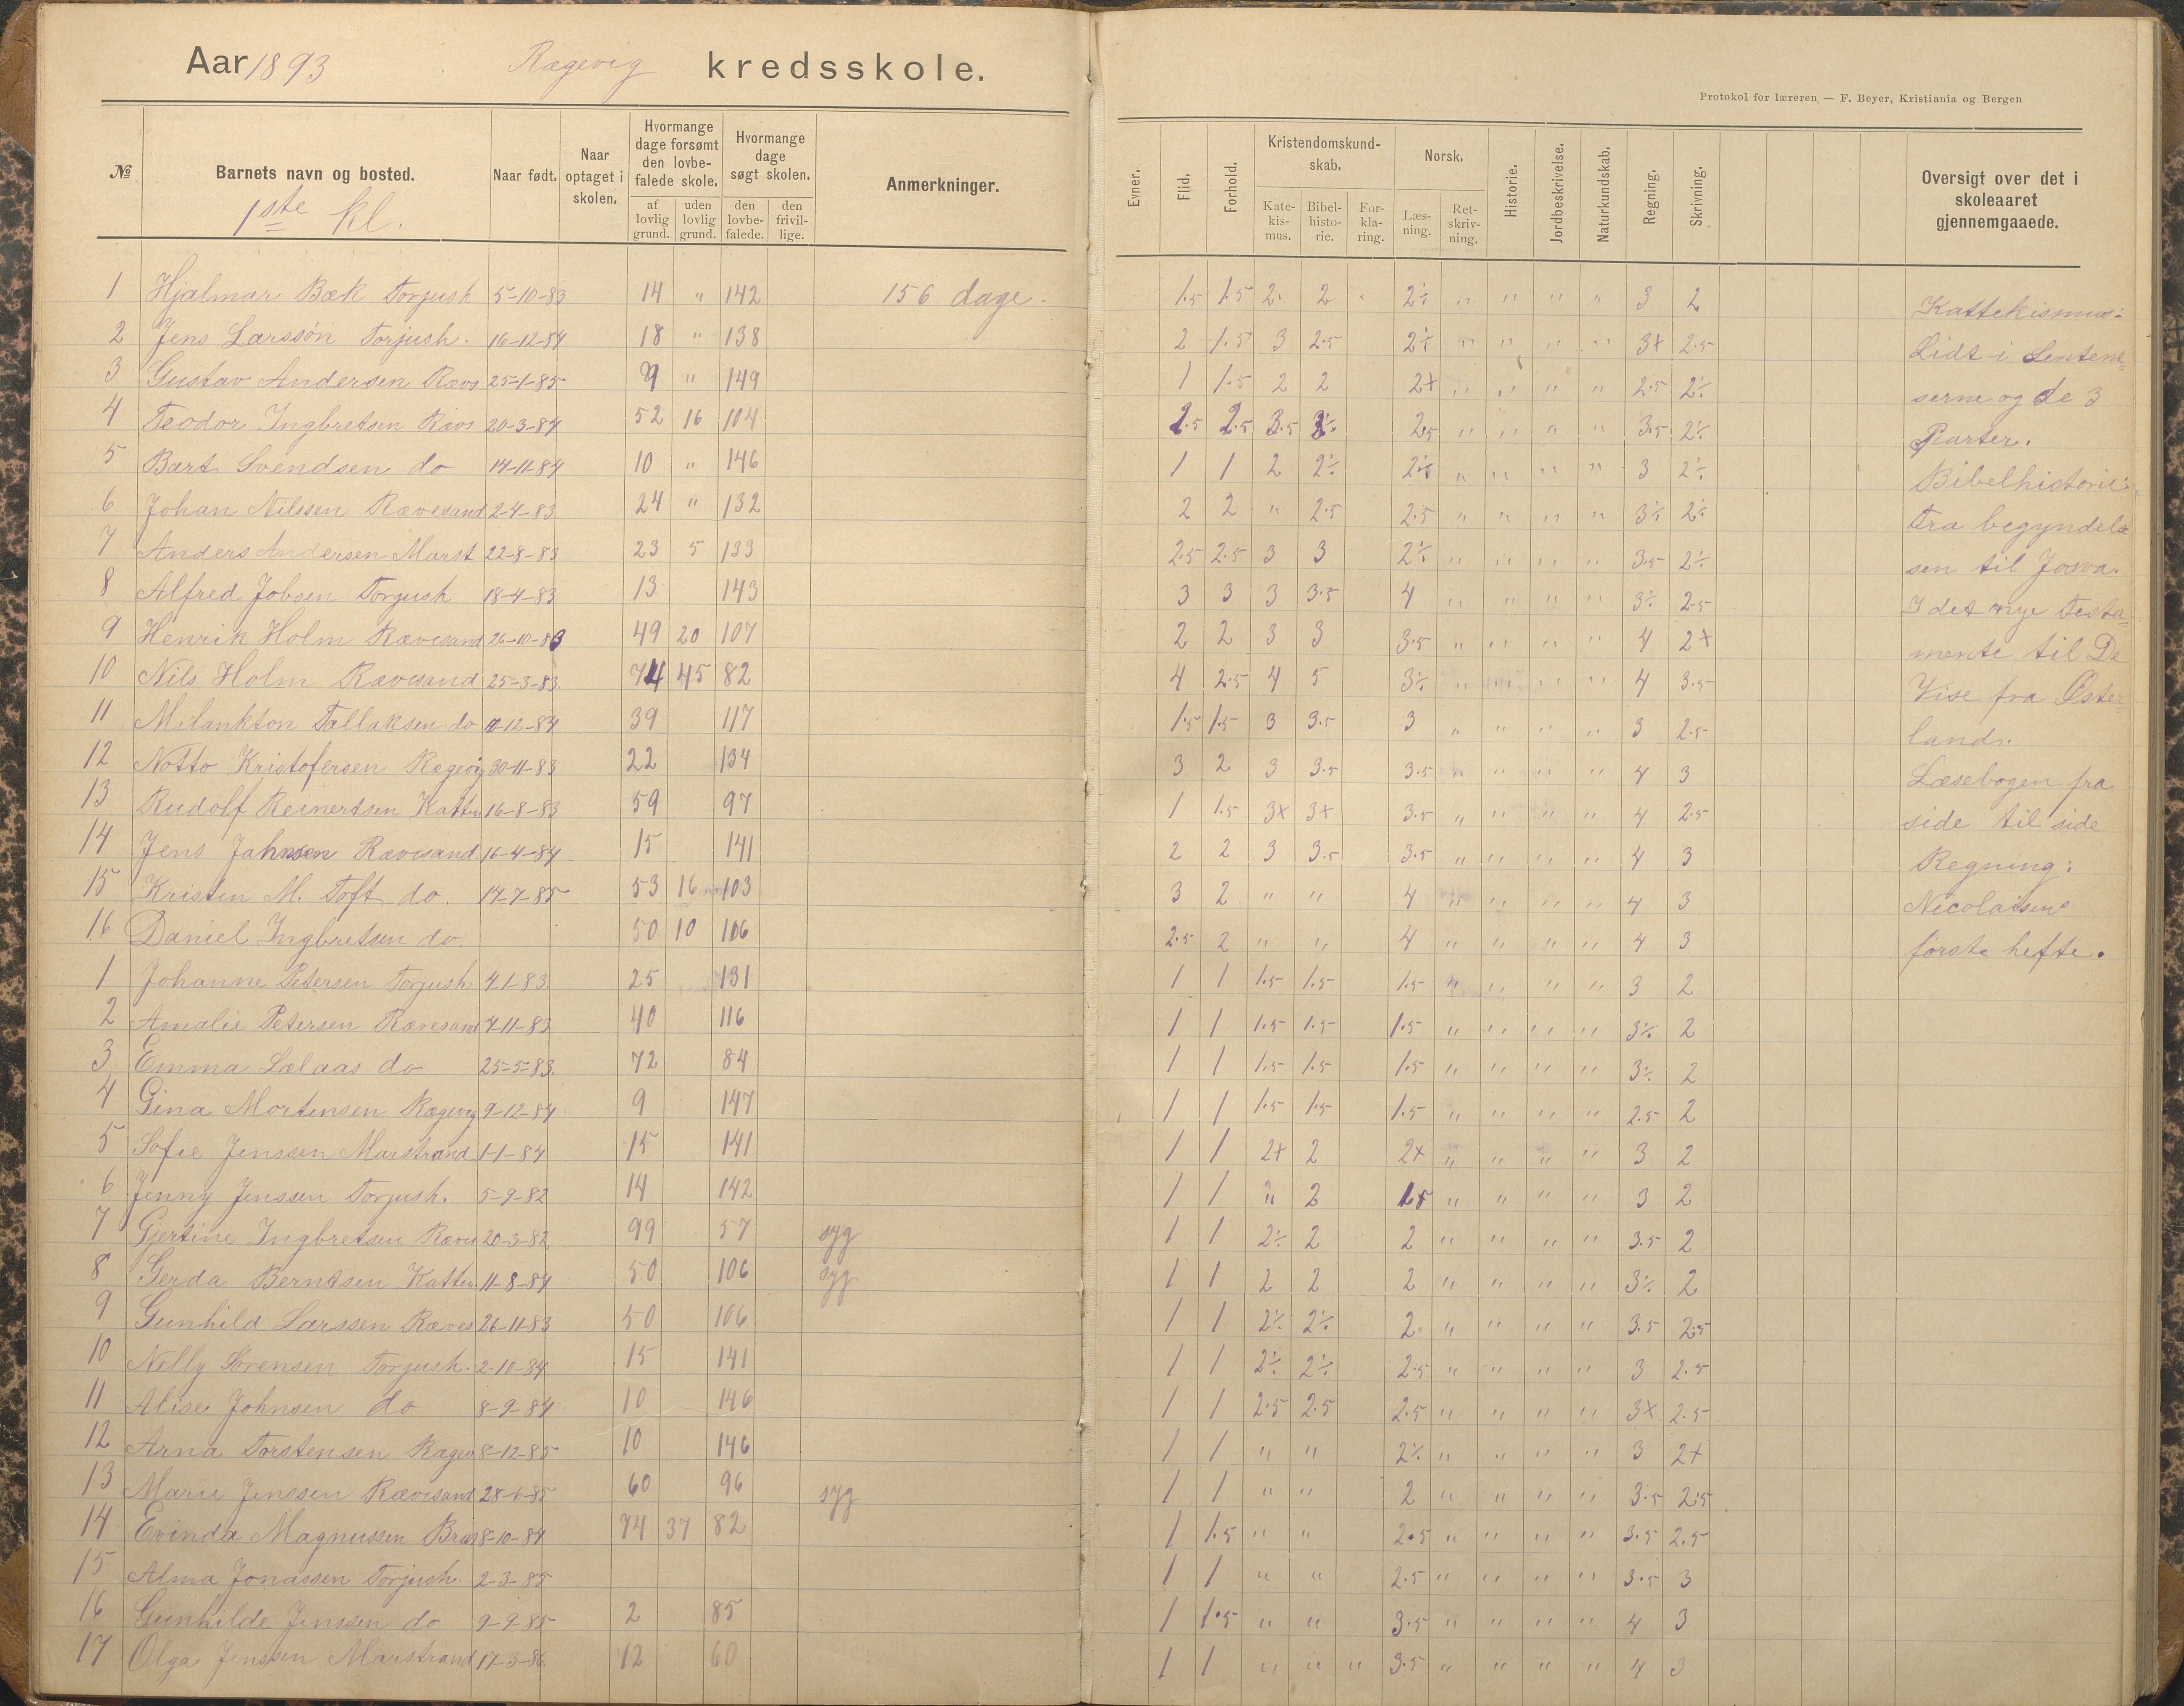 Aar 1893 Rægevig kredsskole.
Protokol for læreren. — F. Beyer, Kristiania og Bergen
№ Barnets navn og bosted. Naar født. Naar optaget i skolen. Hvormange dage forsømt den lovbefalede skole. af lovlig grund. uden lovlig grund. Hvormange dage søgt skolen. den lovbefalede. den frivillige. Anmerkninger. Evner. Flid. Forhold. Kristendomskundskab. Katekismus. Bibelhistorie. Forklaring. Norsk. Læsning. Retskrivning. Historie. Jordbeskrivelse. Naturkundskab. Regning. Skrivning. Oversigt over det i skoleaaret gjennemgaaede.
1ste kl.
1 Hjalmar Bæk Torjush 5-10-83 14 " 142 156 dage. 1.5 1.5 2. 2 " 2÷ " " " " 3 2
2 Jens Larssøn Torjush. 16-12-84 18 " 138 2 1.5 3 2.5 2÷ " " " " 3+ 2.5
3 Gustav Andersen Rævs 25-1-85 9 " 149 1 1.5 2 2 2+ " " " " 2.5 2÷
4 Teodor Ingbretsen Rævs 20-3-84 52 16 104 2.5 2.5 3.5 3÷ 2.5 " " " " 3.5 2÷
5 Bart Svendsen do 14-11-84 10 " 146 1 1 2 2÷ 2÷ " " " " 3 2÷
6 Johan Nilssen Rævesand 2-4-83 24 " 132 2 2 " 2.5 2.5 " " " " 3÷ 2÷
7 Anders Andersen Marst 22-8-83 23 5 133 2.5 2.5 3 3 2÷ " " " " 3.5 2÷
8 Alfred Jobsen Torjush 18-4-83 13 143 3 3 3 3.5 4 " " " " 3÷ 2.5
9 Henrik Holm Rævesand 26-10-83 49 20 107 2 2 3 3 3.5 " " " " 4 2+
10 Nils Holm Rævesand 25-3-83 74 45 82 4 2.5 4 5 3÷ " " " " 4 3.5
11 Milankton Tallaksen do 11-12-84 39 117 1.5 1.5 3 3.5 3 " " " " 3 2.5
12 Notto Kristofersen Rægevig 30-11-83 22 134 3 2 3 3.5 3.5 " " " " 4 3
13 Rudolf Reinertsen Katten 16-8-83 59 97 1 1.5 3+ 3+ 3.5 " " " " 4 2.5
14 Jens Jahnsen Rævesand 16-4-84 15 141 2 2 3 3.5 3.5 " " " " 4 3
15 Kristen M. Toft do. 14-7-85 53 16 103 3 2 " " 4 " " " " 4 3
16 Daniel Ingbretsen do. 50 10 106 2.5 2 " " 4 " " " " 4 3
1 Johanne Petersen Torjush 4-1-83. 25 131 1 1 1.5 1.5 1.5 " " " " 3 2
2 Amalie Petersen Rævesand 7-11-83 40 116 1 1 1.5 1.5 1.5 " " " " 3÷ 2
3 Emma Salaas do 25-5-83. 72 84 1 1 1.5 1.5 1.5 " " " " 3÷ 2
4 Gina Mortensen Rægevig 9-12-84 9 147 1 1 1.5 1.5 1.5 " " " " 2.5 2
5 Sofie Jenssen Marstrand 1-1-84 15 141 1 1 2+ 2 2+ " " " " 3 2
6 Jenny Jenssen Torjush. 5-9-82 14 142 1 1 " 2 1.5 " " " " 3 2
7 Gjertine Ingbretsen Ræves 20-3-82 99 57 syg 1 1 2÷ 2 2 " " " " 3.5 2
8 Gerda Berntsen Katten 11-8-84 50 106 syg 1 1 2 2 2 " " " " 3÷ 2
9 Gunhild Larssen Ræves 26-11-83 50 106 1 1 2÷ 2÷ 2. " " " " 3.5 2.5
10 Nelly Sørensen Torjush. 2-10-84 15 141 1 1 2÷ 2÷ 2.5 " " " " 3 2.5
11 Alise Johnsen do 8-9-84 10 146 1 1 2.5 2.5 2.5 " " " " 3+ 2.5
12 Arna Torstensen Rægev 8-12-85 10 146 1 1 " " 2÷ " " " " 3 2+
13 Marie Jenssen Rævesand 28-6-85 60 96 syg 1 1 " " 2 " " " " 3.5 2.5
14 Evinda Magnussen Bræs 8-10-84 74 37 82 1 1.5 " " 2.5 " " " " 3.5 2.5
15 Alma Jonassen Torjush. 2-3-85 1 1 " " 2.5 " " " " 3.5 3
16 Gunhilde Jenssen do 9-9-85 2 85 1 1.5 " " 3.5 " " " " 4 3
17 Olga Jenssen Marstrand 17-3-86. 12 60 1 1 " " " 3.5 " " " " 4 3
Kattekismus:
Lidt i Sentent=
serne og de 3
Parter.
Bibelhistorie:
Fra begyndel=
sen til Josva.
I det nye Testa=
mente til De
Vise fra Øster=
land.
Læsebogen fra
side til side
Regning:
Nicolaisens
første hefte.